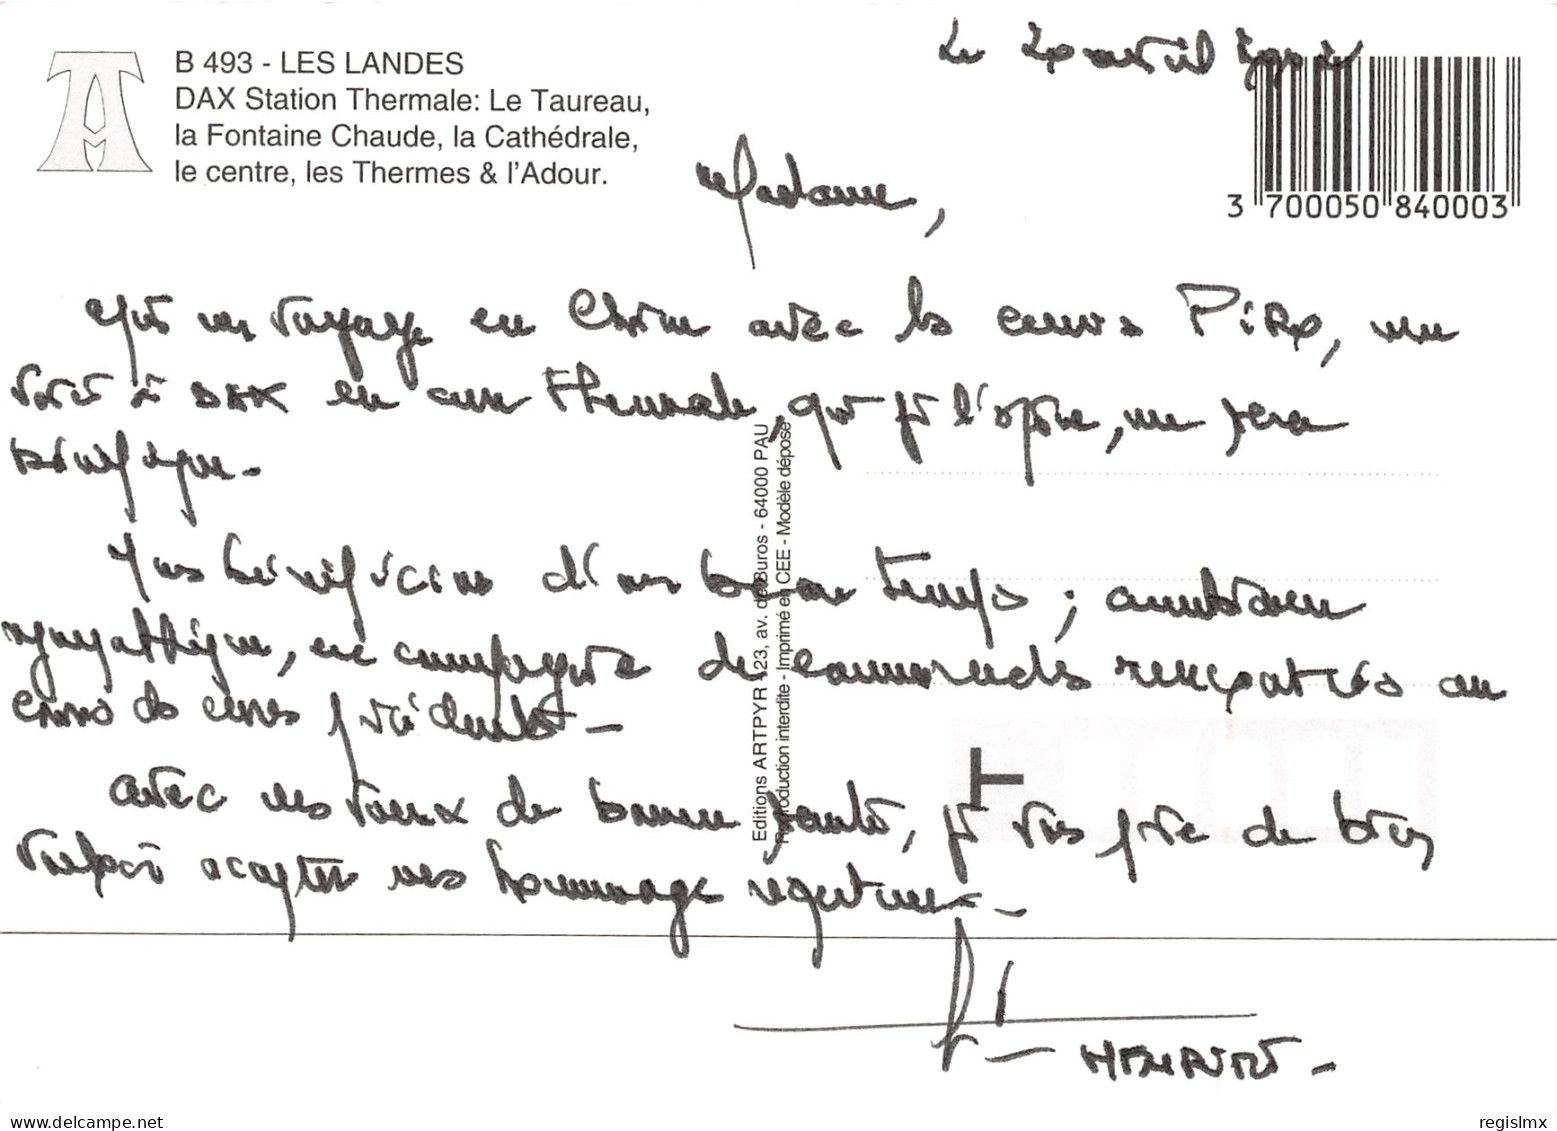 B 493 - LES LANDES
DAX Station Thermale: Le Taureau,
la Fontaine Chaude, la Cathédrale,
le centre, les Thermes & l'Adour.
Le avril
3 700050 840003
Madame,
un voyage en Chine avec la, me
voici à DAX en cure thermale, qui je l'espère, me sera
bénéfique.
bénéficions d'un beau temps ; ambiance
sympathique, en compagnie de camarades rencontrés au
cours de cures précédentes
avec mes vœux de bonne santé, je vous prie de bien
vouloir accepter mes hommages respectueux.
Editions ARTPYR 123, av. de Buros - 64000 PAU
Reproduction interdite - Imprimé en CEE - Modèle déposé
T
www.delcampe.net
regislmx